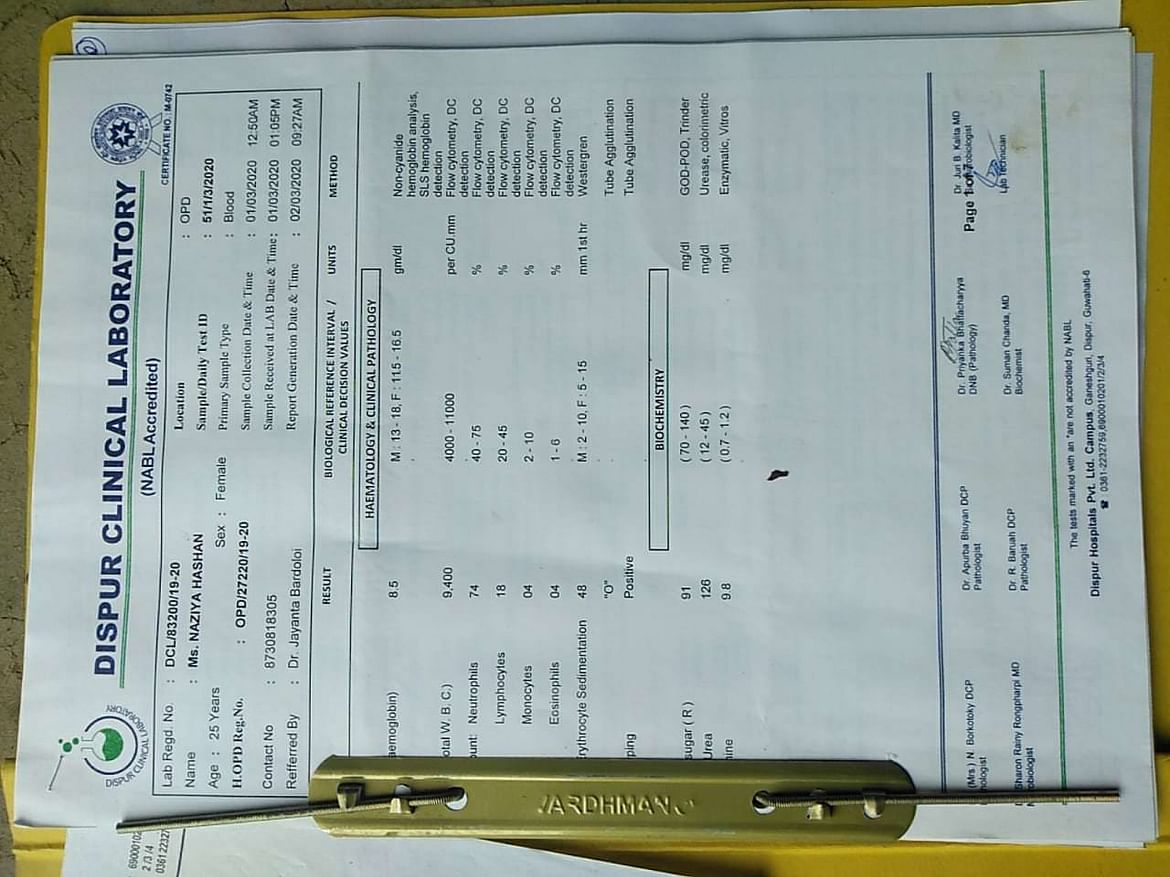 DISPUR CLINICAL LABORATORY
(NABL Accredited)
DISPUR CLINICAL LABORATORY
CERTIFICATE NO. : M-0742
Lab Regd. No. : DCL/83200/19-20
Name : Ms. NAZIYA HASHAN
Age : 25 Years Sex : Female
H.OPD Reg.No. : OPD/27220/19-20
Contact No : 8730818305
Refferred By : Dr. Jayanta Bardoloi
Location : OPD
Sample/Daily Test ID : 51/1/3/2020
Primary Sample Type : Blood
Sample Collection Date & Time : 01/03/2020 12:50AM
Sample Received at LAB Date & Time : 01/03/2020 01:05PM
Report Generation Date & Time : 02/03/2020 09:27AM
RESULT BIOLOGICAL REFERENCE INTERVAL / CLINICAL DECISION VALUES UNITS METHOD
HAEMATOLOGY & CLINICAL PATHOLOGY
aemoglobin) 8.5 M : 13 - 18, F : 11.5 - 16.5 gm/dl Non-cyanide
hemoglobin analysis,
SLS hemoglobin
detection
otal W. B. C.) 9,400 4000 - 11000 per CU.mm Flow cytometry, DC
detection
unt: Neutrophils 74 40 - 75 % Flow cytometry, DC
detection
Lymphocytes 18 20 - 45 % Flow cytometry, DC
detection
Monocytes 04 2 - 10 % Flow cytometry, DC
detection
Eosinophils 04 1 - 6 % Flow cytometry, DC
detection
rythrocyte Sedimentation 48 M : 2 - 10, F : 5 - 15 mm 1st hr Westergren
ping "O" Tube Agglutination
Positive Tube Agglutination
BIOCHEMISTRY
sugar ( R ) 91 ( 70 - 140 ) mg/dl GOD-POD, Trinder
Urea 126 ( 12 - 45 ) mg/dl Urease, colorimetric
nine 9.8 ( 0.7 - 1.2 ) mg/dl Enzymatic, Vitros
VARDHMAN
(Mrs.) N. Borkotoky DCP
Dr. Apurba Bhuyan DCP
Pathologist
Dr. Priyanka Bhattacharyya
DNB (Pathology)
Dr. Juri B. Kalita MD
Page 1 of 1
Sharon Rainy Rongpharpi MD
Dr. R. Baruah DCP
Pathologist
Dr. Suman Chanda, MD
Biochemist
Lab Technician
The tests marked with an *are not accredited by NABL
Dispur Hospitals Pvt. Ltd. Campus, Ganeshguri, Dispur, Guwahati-6
☎ : 0361-2232759,6900010201/2/3/4